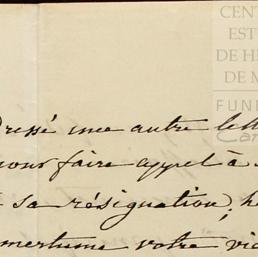 CENT
EST
DE H
DE M
FUND
dressé une autre lett
pour faire appel à
sa résignation; h
mertume votre vie